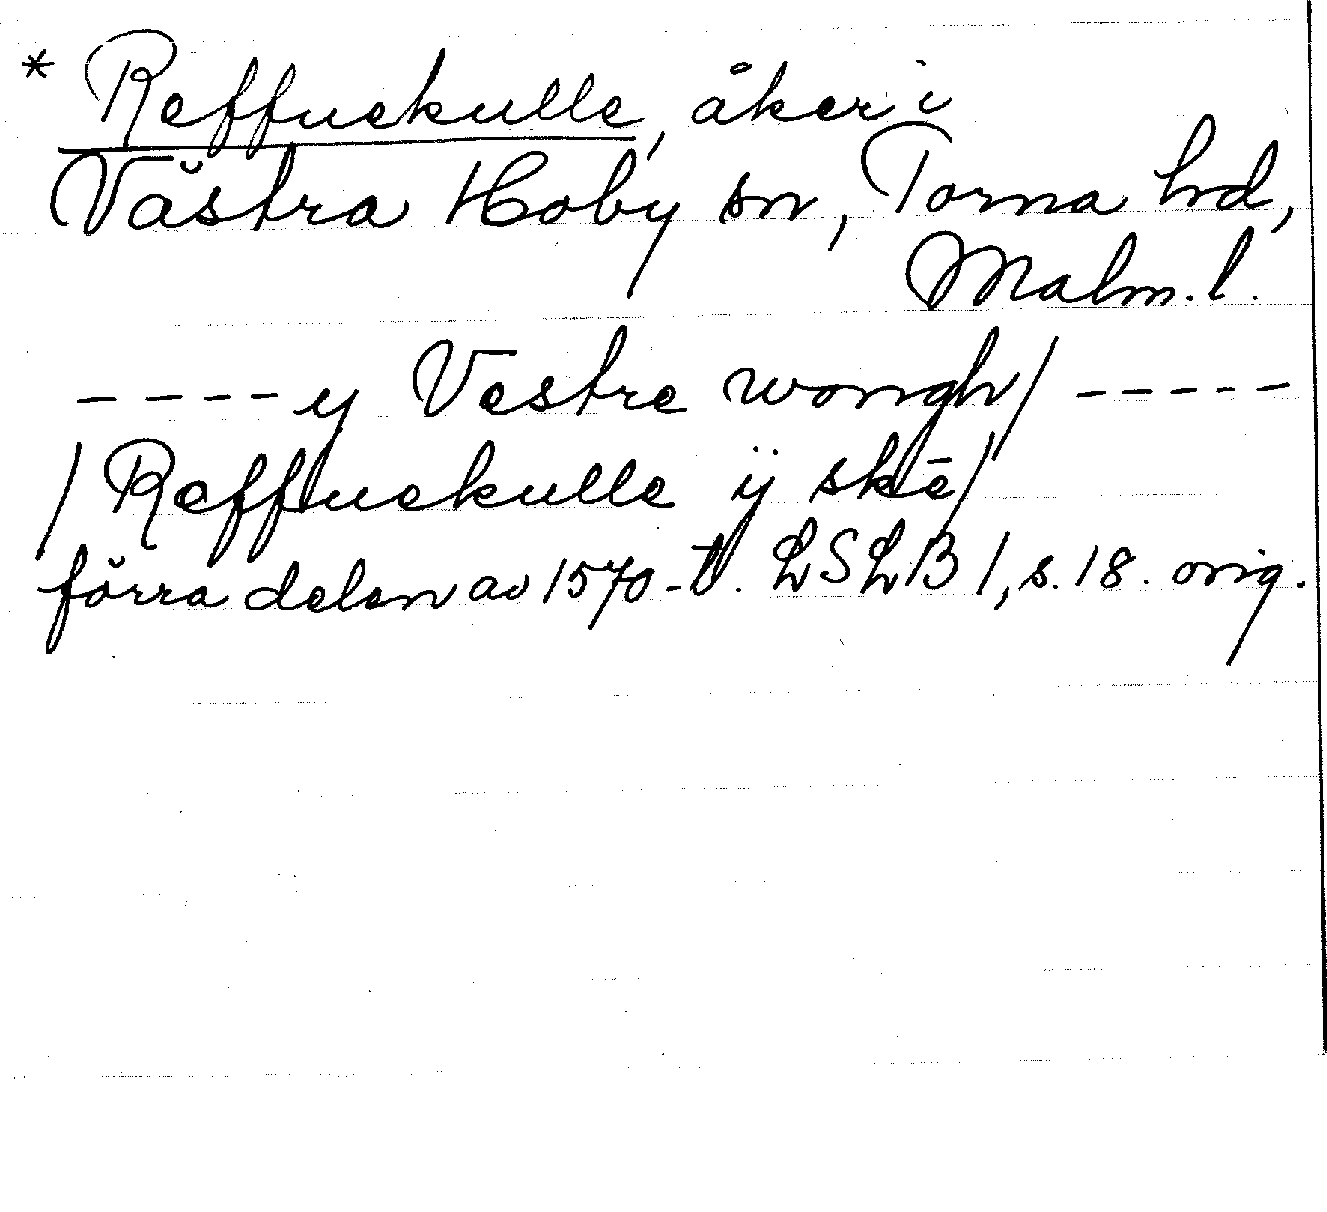 * Reffuekulle, åker i
Västra Hoby sn, Torna hd,
Malm. l.
- - - - - y Vestre wongh / - - - - -
/ Reffuekulle ÿ skē /
förra delen av 1570-t. LSLB 1, s. 18. orig.